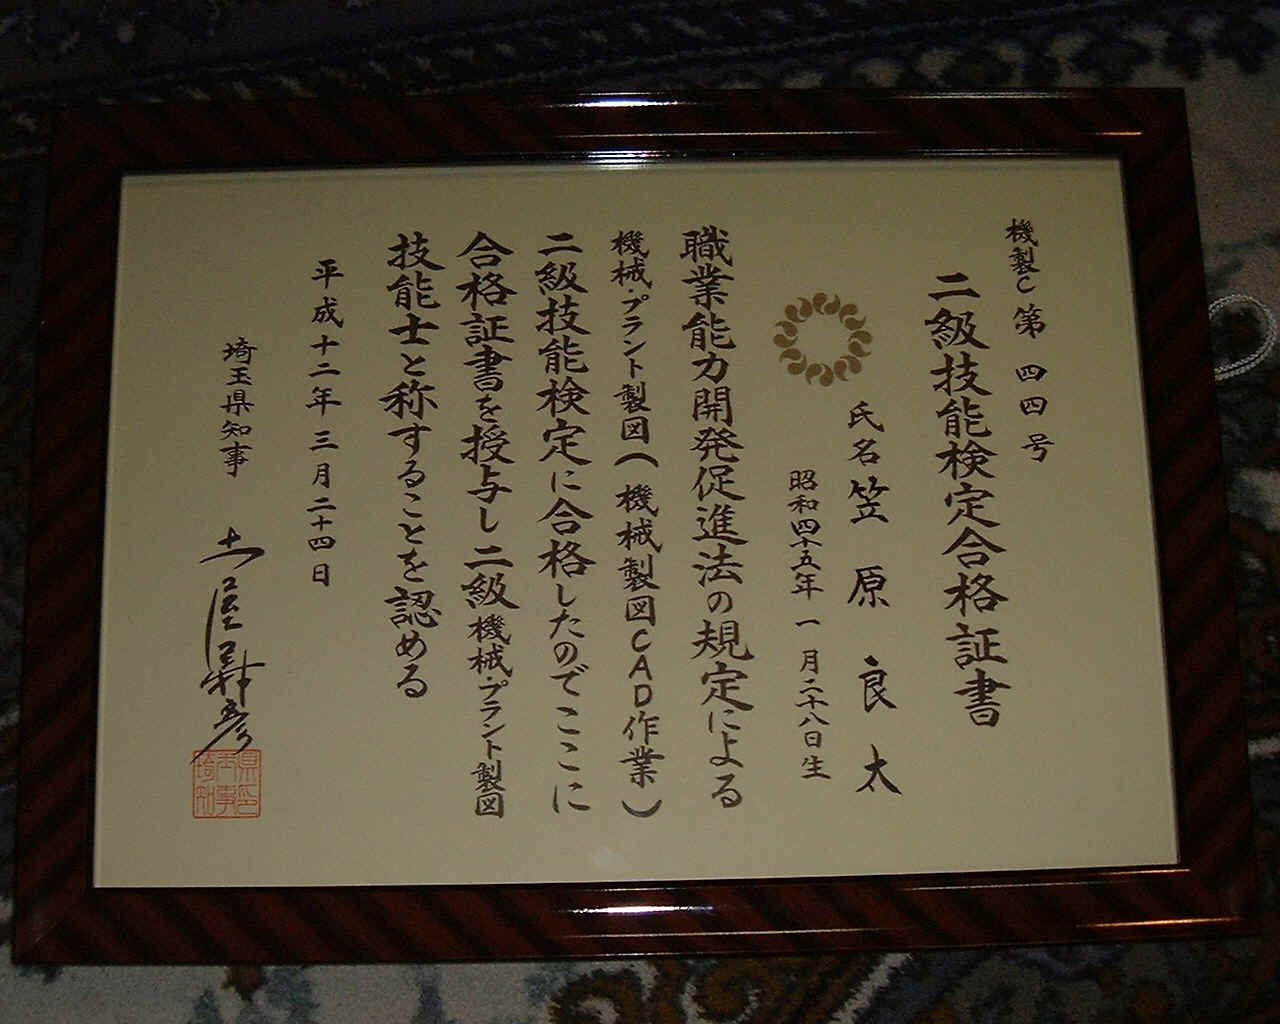 機製C第四四号
二級技能検定合格証書
氏名 笠原良太
昭和四十五年一月二十八日生
職業能力開発促進法の規定による
機械・プラント製図(機械製図CAD作業)
二級技能検定に合格したのでここに
合格証書を授与し二級機械・プラント製図
技能士と称することを認める
平成十二年三月二十四日
埼玉県知事 土屋義彦
埼玉県知事印